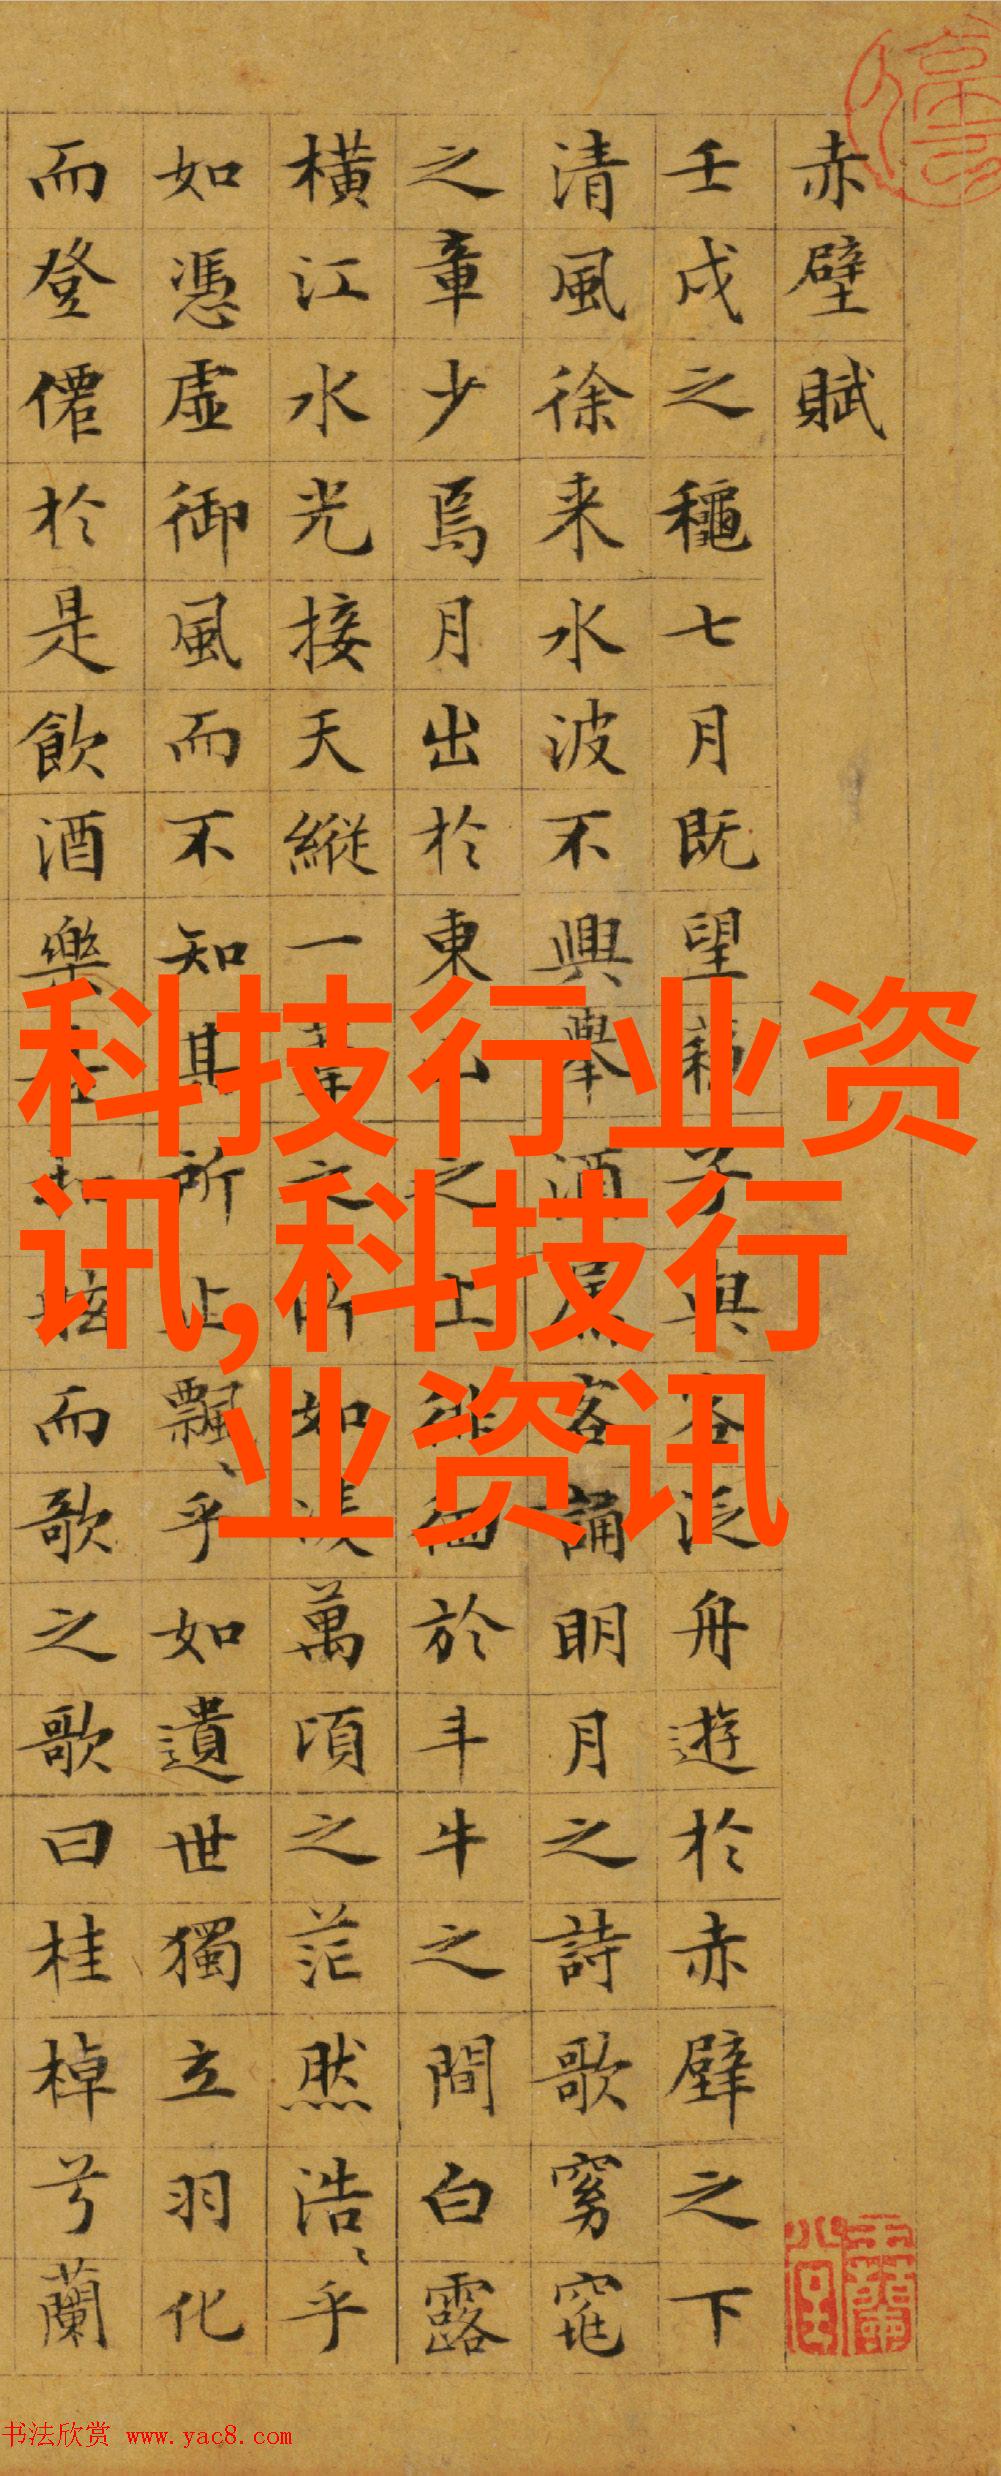 赤壁賦
壬戌之穐七月既望蘇子與客泛舟遊於赤壁之下
清風徐来水波不興舉酒屬客誦明月之詩歌窈窕
之章少焉月出於東山之上徘徊於斗牛之間白露
橫江水光接天縱一葦之所如凌萬頃之茫然浩〻乎
如憑虛御風而不知其所止飄〻乎如遺世獨立羽化
而登僊於是飲酒樂甚扣舷而歌之歌曰桂棹兮蘭
科技行业资
讯,科技行
业资讯
书法欣赏 www.yac8.com